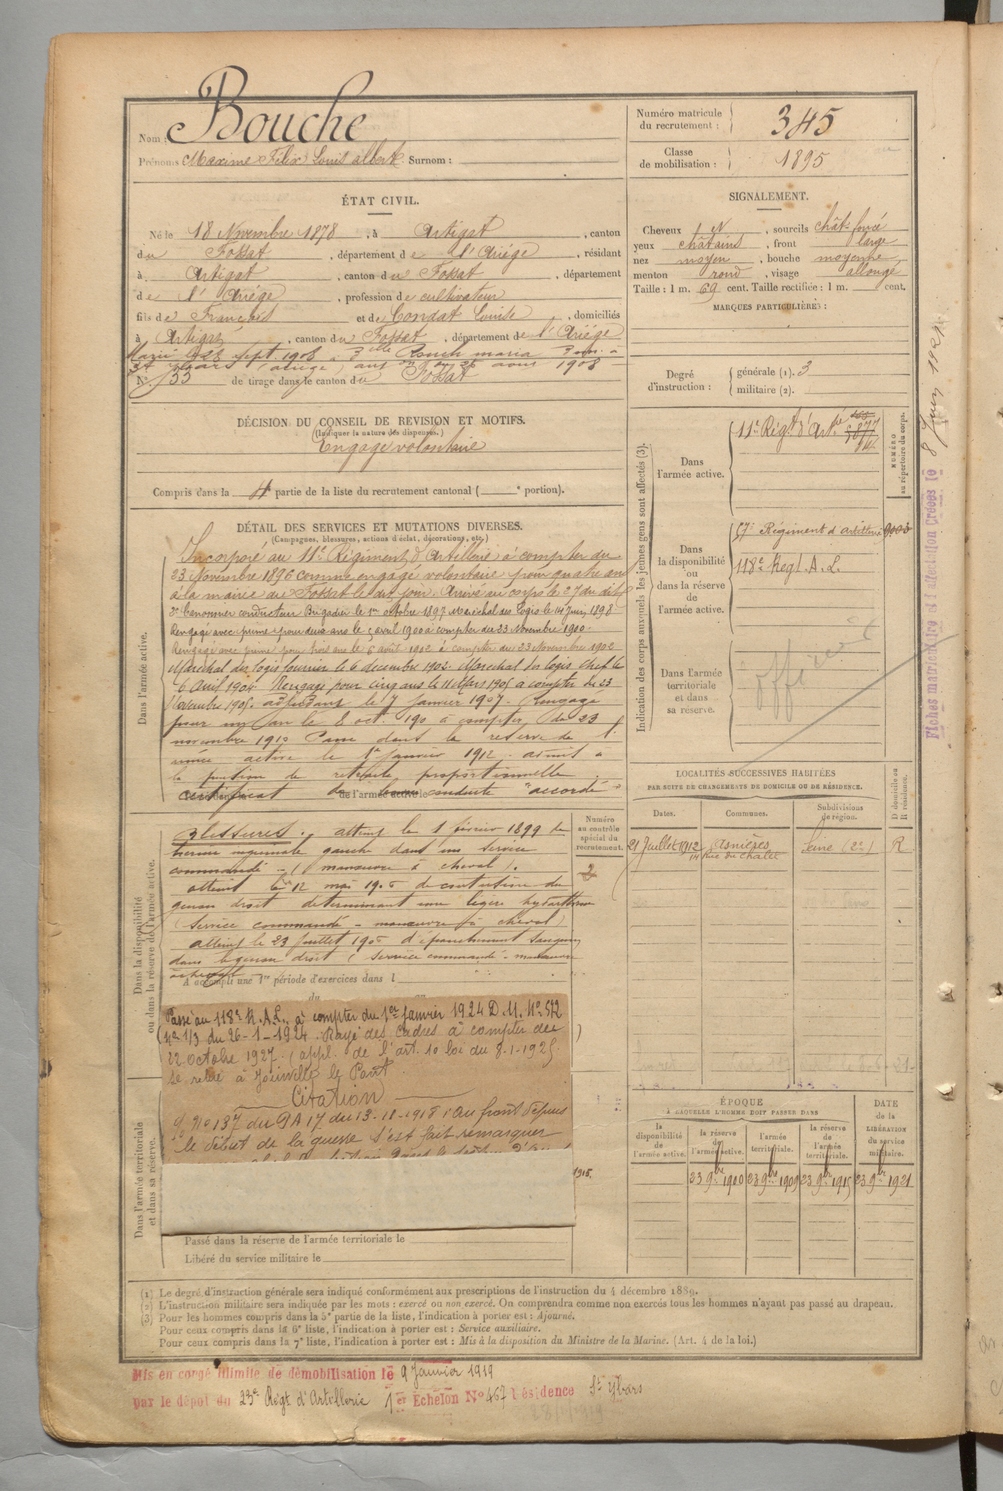 Nom : Bouche
Prénoms Maxime Félix Louis Albert Surnom :
Numéro matricule du recrutement : 345
Classe de mobilisation : 1895
ÉTAT CIVIL.
Né le 18 Novembre 1878, à Artigat, canton
du Fossat, département de l'Ariège, résidant
à Artigat, canton du Fossat, département
de l'Ariège, profession de cultivateur
fils de François et de Condat Louise, domiciliés
à Artigat, canton du Fossat, département de l'Ariège
Marié le 28 sept. 1908 à Dlle Rouch Maria
N° 33 de tirage dans le canton du Fossat
SIGNALEMENT.
Cheveux N, sourcils chât. foncé
yeux châtains, front large
nez moyen, bouche moyenne
menton rond, visage allongé
Taille : 1 m. 69 cent. Taille rectifiée : 1 m. cent.
MARQUES PARTICULIÈRES :
Degré d'instruction : générale (1). 3
militaire (2).
DÉCISION DU CONSEIL DE REVISION ET MOTIFS.
(Indiquer la nature des dispenses.)
Engagé volontaire
Compris dans la 4e partie de la liste du recrutement cantonal ( e portion).
DÉTAIL DES SERVICES ET MUTATIONS DIVERSES.
(Campagnes, blessures, actions d'éclat, décorations, etc.)
Dans l'armée active.
Incorporé au 11e Régiment d'Artillerie à compter du
23 Novembre 1896 comme engagé volontaire pour quatre ans
à la mairie du Fossat le dit jour. Arrivé au corps le 27 du dit
2e Canonnier conducteur Brigadier le 1er octobre 1897 Maréchal des Logis le 14 juin 1898
Rengagé avec prime pour deux ans le 5 avril 1900 à compter du 23 Novembre 1900.
Rengagé avec prime pour trois ans le 6 août 1902 à compter du 23 Novembre 1902
Maréchal des logis fourrier le 6 décembre 1902. Maréchal des logis chef le
6 Avril 1904 Rengagé pour cinq ans le 11 Mars 1905 à compter du 23
Novembre 1905. adjudant le 7 Janvier 1907. Rengagé
pour un an le 8 oct. 190 à compter du 23
novembre 1910 Passé dans la réserve de l'
armée active le 1er Janvier 1912. admis à
la pension de retraite proportionnelle
certificat de bonne conduite "accordé"
Dans la disponibilité ou dans la réserve de l'armée active.
Blessures. atteint le 1 février 1899 de
hernie inguinale gauche dans un service
commandé - (manœuvre à cheval).
atteint le 12 mai 1905 de contusion du
genou droit déterminant une légère hydarthrose
(service commandé - manœuvre à cheval)
atteint le 23 Juillet 1905 d'épanchement sanguin
dans le genou droit (service commandé - manœuvre
à cheval)
A accompli une 1re période d'exercices dans l
Passé au 118e R.A.L. à compter du 1er Janvier 1924 D.M. N° 512
1/3 du 26-1-1924. Rayé des cadres à compter du
22 octobre 1927. (appl. de l'art. 10 loi du 8-1-1925.
Se retire à Joinville le Pont.
Citation
N° 137 du PA 17 du 13-11-1918 : Au front depuis
le début de la guerre s'est fait remarquer
1915.
Dans l'armée territoriale et dans sa réserve.
Passé dans la réserve de l'armée territoriale le
Libéré du service militaire le
Numéro au contrôle spécial du recrutement.
Indication des corps auxquels les jeunes gens sont affectés (3).
NUMÉRO au répertoire du corps.
Dans l'armée active.
11e Régt d'Artie
Dans la disponibilité ou dans la réserve de l'armée active.
57e Régiment d'artillerie
118e Regt. A. L.
Dans l'armée territoriale et dans sa réserve.
Fiches matriculaire et d'affectation Créées le 8 Juin
LOCALITÉS SUCCESSIVES HABITÉES
PAR SUITE DE CHANGEMENTS DE DOMICILE OU DE RÉSIDENCE.
D domicile ou R résidence.
Dates. Communes. Subdivisions de région.
21 Juillet 1912 Asnières Seine (2e) R
14 Rue du Chalet
ÉPOQUE
A LAQUELLE L'HOMME DOIT PASSER DANS
DATE de la LIBÉRATION du service militaire.
la disponibilité de l'armée active. la réserve de l'armée active. l'armée territoriale. la réserve de l'armée territoriale.
23 9bre 1900 23 9bre 1909 23 9bre 1915 23 9bre 1921
(1) Le degré d'instruction générale sera indiqué conformément aux prescriptions de l'instruction du 4 décembre 1889.
(2) L'instruction militaire sera indiquée par les mots : exercé ou non exercé. On comprendra comme non exercés tous les hommes n'ayant pas passé au drapeau.
(3) Pour les hommes compris dans la 5e partie de la liste, l'indication à porter est : Ajourné.
Pour ceux compris dans la 6e liste, l'indication à porter est : Service auxiliaire.
Pour ceux compris dans la 7e liste, l'indication à porter est : Mis à la disposition du Ministre de la Marine. (Art. 4 de la loi.)
Mis en congé illimité de démobilisation le 9 Janvier 1919
par le dépôt du 23e Régt d'Artillerie 1er Echelon N° 467 résidence St Ybars